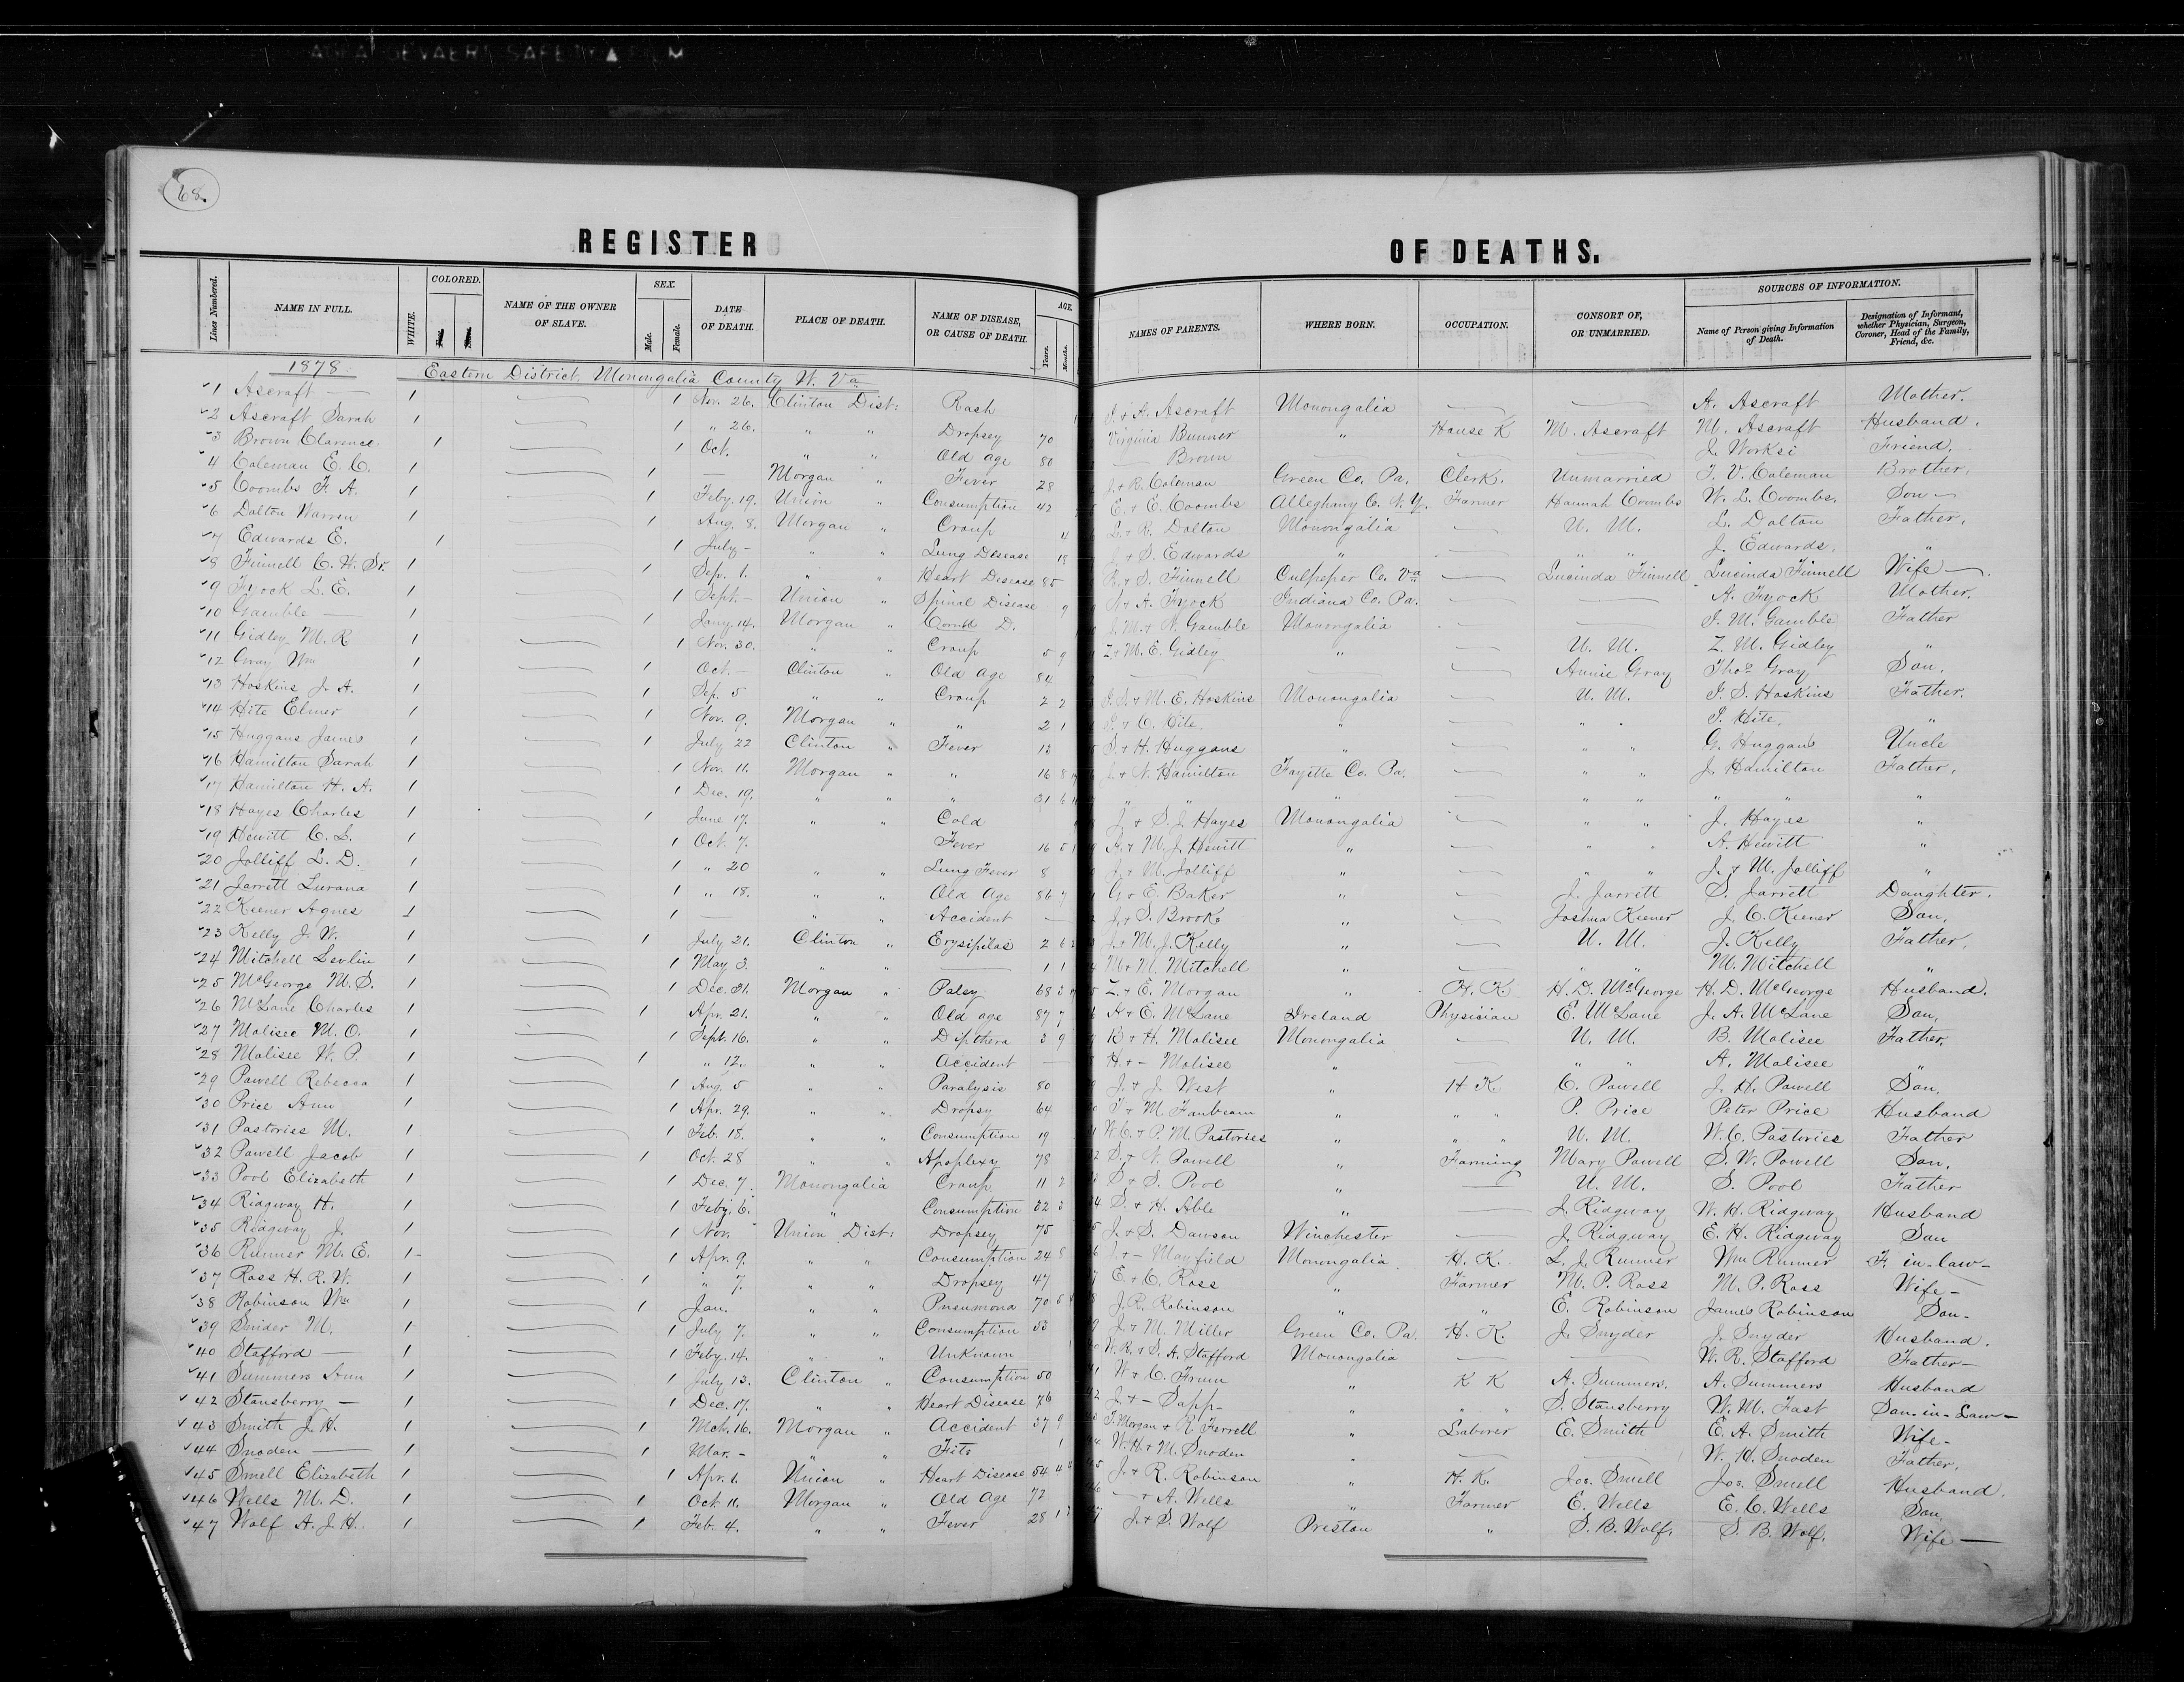 68.
REGISTER OF DEATHS.
Lines Numbered. NAME IN FULL. WHITE. COLORED. NAME OF THE OWNER OF SLAVE. SEX. Male. Female. DATE OF DEATH. PLACE OF DEATH. NAME OF DISEASE, OR CAUSE OF DEATH. AGE. Years. Months. NAMES OF PARENTS. WHERE BORN. OCCUPATION. CONSORT OF, OR UNMARRIED. SOURCES OF INFORMATION. Name of Person giving Information of Death. Designation of Informant, whether Physician, Surgeon, Coroner, Head of the Family, Friend, &c.
1878. Eastern District, Monongalia County W. Va
1 Ascraft — 1 1 Nov. 26. Clinton Dist: Rash 1 A. Ascraft Monongalia — — A. Ascraft Mother.
2 Ascraft Sarah 1 1 " 26. " " Dropsey 70 Virginia Bunner " House K M. Ascraft M. Ascraft Husband.
3 Brown Clarence 1 1 Oct. " " Old age 80 — Brown — — — J. Worksi Friend.
4 Coleman E. C. 1 1 — Morgan " Fever 28 J. + R. Coleman Green Co. Pa. Clerk. Unmarried T. V. Coleman Brother.
5 Coombs F. A. 1 1 Feby. 19. Union " Consumption 42 E. + E. Coombs Alleghany C. N.Y. Farmer Hannah Coombs W. L. Coombs. Son —
6 Dalton Warren 1 1 Aug. 8. Morgan " Croup 11 L. + R. Dalton Monongalia — U. M. L. Dalton Father.
7 Edwards E. 1 1 July — " " Lung Disease 18 J. + S. Edwards " — " " J. Edwards. "
8 Finnell C. H. Sr. 1 1 Sep. 1. " " Heart Disease 85 R. + S. Finnell Culpeper Co. Va — Lucinda Finnell Lucinda Finnell Wife —
9 Fyock L. E. 1 1 Sept. — Union " Spinal Disease 9 A. Fyock Indiana Co. Pa. — — A. Fyock Mother.
10 Gamble — 1 1 Jany. 14. Morgan " D. J. M. + N. Gamble Monongalia — — J. M. Gamble Father
11 Gidley M. R 1 1 Nov. 30. " " Croup 5 9 Z. + M. E. Gidley " U. M. Z. M. Gidley "
12 Gray Wm 1 1 Oct. — Clinton " Old Age 84 — — — Annie Gray Thos. Gray Son.
13 Hoskins J. A. 1 1 Sep. 5 " " Croup 2 2 J. S. + M. E. Hoskins Monongalia — U. M. J. S. Hoskins Father.
14 Hite Elmer 1 1 Nov. 9. Morgan " " 2 1 J. + C. Hite. " — " " J. Hite. "
15 Huggans James 1 1 July 22 Clinton " Fever 13 S. + H. Huggans " — " " G. Huggans Uncle
16 Hamilton Sarah 1 1 Nov. 11. Morgan " " 16 8 J. + N. Hamilton Fayette Co. Pa. — " " J. Hamilton Father.
17 Hamilton H. A. 1 1 Dec. 19. " " " 31 6 " " " — " " " " "
18 Hayes Charles 1 1 June 17. " " Cold J. + S. J. Hayes Monongalia — " " J. Hayes "
19 Hewitt C. L. 1 1 Oct. 7. Fever 16 5 A. + M. J. Hewitt " — " " A. Hewitt "
20 Jolliff L. D. 1 1 " 20 " " Lung Fever 8 J. + M. Jolliff " — " " J. + M. Jolliff "
21 Jarrett Lurana 1 1 " 18. " " Old Age 86 7 G. + E. Baker " — J. Jarrett S. Jarrett Daughter.
22 Keener Agnes 1 1 — " " Accident — J. + S. Brooks " — Joshua Keener J. C. Keener Son.
23 Kelly J. W. 1 1 July 21. Clinton " Erysipilas 2 6 J. + M. J. Kelly " — U. M. J. Kelly Father.
24 Mitchell Levlin 1 1 May 3. " " — 1 1 M. + M. Mitchell " — " " M. Mitchell "
25 McGeorge M. S. 1 1 Dec. 31. Morgan " Palsy 68 3 Z. + E. Morgan " H. K H. D. McGeorge H. D. McGeorge Husband.
26 McLane Charles 1 1 Apr. 21. " " Old age 87 7 A. + E. McLane Ireland Physician E. McLane J. A. McLane Son.
27 Malisee M. O. 1 1 Sept. 16. " " Dipthera 3 9 B. + H. Malisee Monongalia — U. M. B. Malisee Father.
28 Malisee W. P. 1 1 " 12. " " Accident — H. + — Malisee " — " " A. Malisee "
29 Pawell Rebecca 1 1 Aug. 5 " " Paralysis 80 J. + J. West " H K C. Pawell J. H. Pawell Son.
30 Price Ann 1 1 Apr. 29. " " Dropsy 64 T. + M. Fanbeam " " " P. Price Peter Price Husband
31 Pastories M. 1 1 Feb. 18. " " Consumption 19 W. C. + P. M. Pastories " " " U. M. W. C. Pastories Father
32 Pawell Jacob 1 1 Oct. 28 " " Apoplexy 78 S. + N. Pawell " Farming Mary Pawell S. W. Powell Son.
33 Pool Elizabeth 1 1 Dec. 7. Monongalia Croup. 11 2 S. + S. Pool " — U. M. S. Pool Father
34 Ridgway H. 1 1 Feby. 6. " Consumption 32 3 S. + H. Able " — J. Ridgway W. H. Ridgway Husband
35 Ridgway J. 1 1 Nov. Union Dist: Dropsey 75 J. + S. Dawson Winchester — J. Ridgway E. H. Ridgway Son
36 Runner M. E. 1 1 Apr. 9. " " Consumption 24 8 J. + — Mayfield Monongalia H. K. L. J. Runner Wm Runner F. in-law —
37 Ross H. R. W. 1 1 " 7. " " Dropsey 47 E. + C. Ross " Farmer M. P. Ross M. P. Ross Wife —
38 Robinson Wm 1 1 Jan. " " Pneumona 70 5 J. R. Robinson " " E. Robinson James Robinson Son —
39 Snider M. 1 1 July 7. " " Consumption 53 J. + M. Miller Green Co. Pa. H. K. J. Snyder J. Snyder Husband.
40 Stafford — 1 1 Feby. 14. " " Unknown W. R. + S. A. Stafford Monongalia — — W. R. Stafford Father —
41 Summers Ann 1 1 July 13. Clinton " Consumption 50 W. + C. Frum " K K A. Summers. A. Summers Husband
42 Stansberry — 1 1 Dec. 17. " " Heart Disease 76 J. + — Sapp — " " " S. Stansberry W. M. Fast Son-in-Law —
43 Smith J. H. 1 1 Mch. 16. Morgan " Accident 37 9 T. Morgan + R. Ferrell " Laborer E. Smith E. A. Smith Wife —
44 Snoden — 1 1 Mar. — " " Fits 1 W. H. + M. Snoden " — — W. H. Snoden Father.
45 Smell Elizabeth 1 1 Apr. 1. Union " Heart Disease 54 4 J. + R. Robinson " H. K. Jos. Smell Jos. Smell Husband.
46 Wells M. D. 1 1 Oct. 11. Morgan " Old Age 72 — + A. Wells " Farmer E. Wells E. C. Wells Son.
47 Wolf A. J. H. 1 1 Feb. 4. " " Fever 28 1 J. + S. Wolf Preston " S. B. Wolf. S. B. Wolf. Wife —